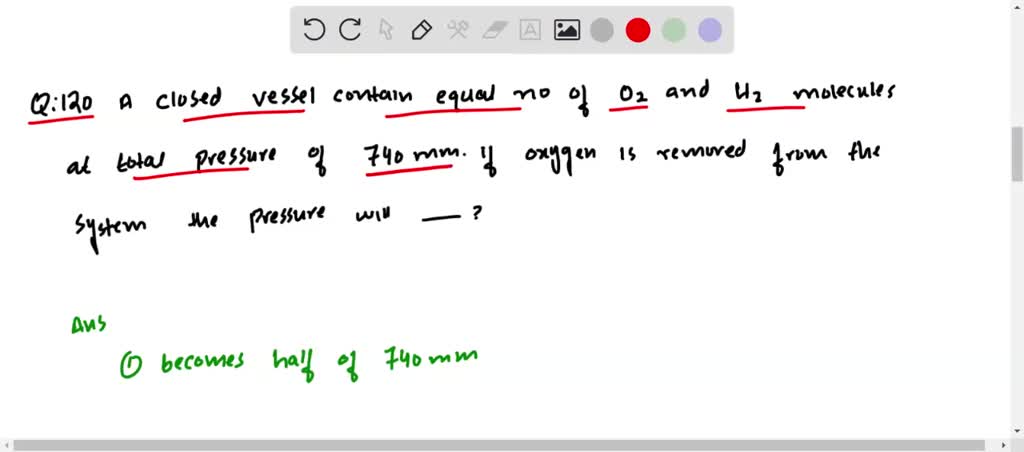 Q:120 A closed vessel contain equal no of O2 and H2 molecules
at total pressure of 740 mm. If oxygen is removed from the
system the pressure will — ?
Ans
① becomes half of 740 mm